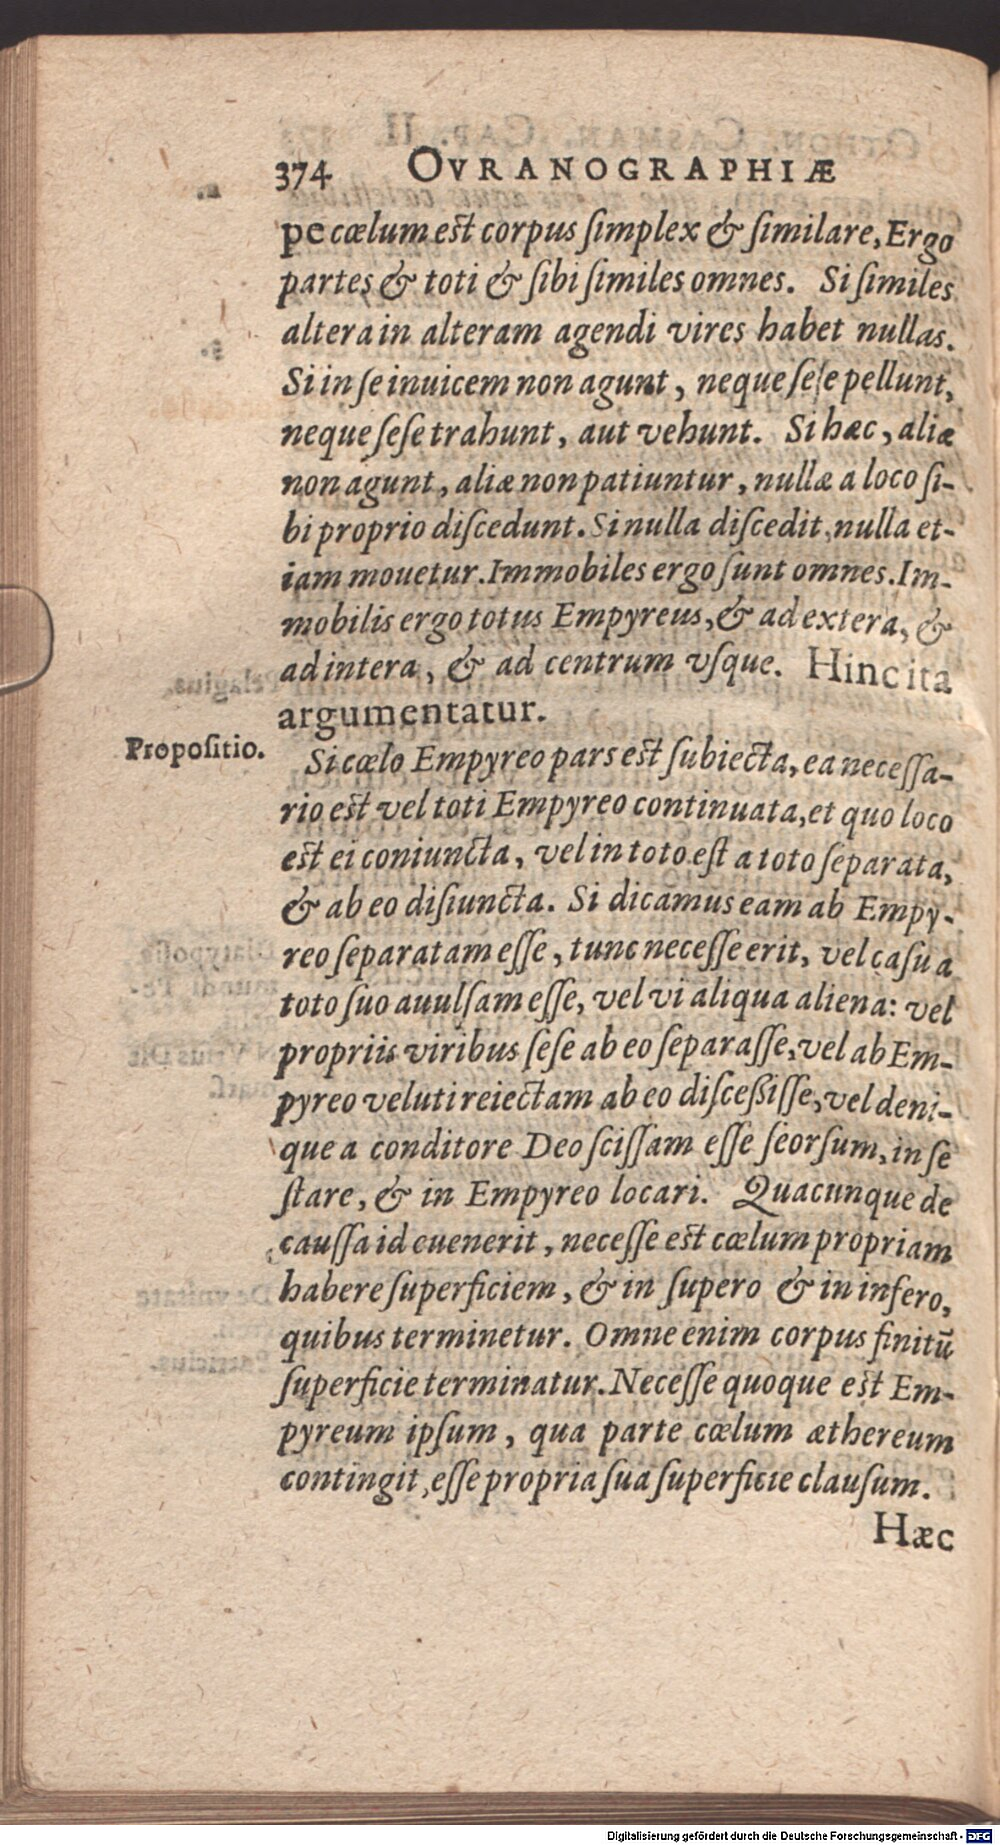 374 OVRANOGRAPHIÆ
pe cœlum est corpus ſimplex & ſimilare, Ergo
partes & toti & ſibi ſimiles omnes. Si ſimiles
altera in alteram agendi vires habet nullas.
Si in ſe inuicem non agunt, neque ſeſe pellunt,
neque ſeſe trahunt, aut vehunt. Si hæc, aliæ
non agunt, aliæ non patiuntur, nullæ a loco ſi-
bi proprio diſcedunt. Si nulla diſcedit, nulla et-
iam mouetur. Immobiles ergo ſunt omnes. Im-
mobilis ergo totus Empyreus, & ad extera, &
ad intera, & ad centrum vſque. Hinc ita
argumentatur.
Propoſitio.
Si cœlo Empyreo pars est ſubiecta, ea neceſſa-
rio est vel toti Empyreo continuata, et quo loco
est ei coniuncta, vel in toto eſt a toto ſeparata,
& ab eo diſiuncta. Si dicamus eam ab Empy-
reo ſeparatam eſſe, tunc neceſſe erit, vel caſu a
toto ſuo auulſam eſſe, vel vi aliqua aliena: vel
propriis viribus ſeſe ab eo ſeparaſſe, vel ab Em-
pyreo veluti reiectam ab eo diſceßiſſe, vel deni-
que a conditore Deo ſciſſam eſſe ſeorſum, in ſe
ſtare, & in Empyreo locari. Quacunque de
cauſſa id euenerit, neceſſe est cœlum propriam
habere ſuperficiem, & in ſupero & in infero,
quibus terminetur. Omne enim corpus finitū
ſuperficie terminatur. Neceſſe quoque est Em-
pyreum ipſum, qua parte cœlum æthereum
contingit, eſſe propria ſua ſuperficie clauſum.
Hæc
Digitalisierung gefördert durch die Deutsche Forschungsgemeinschaft - DFG